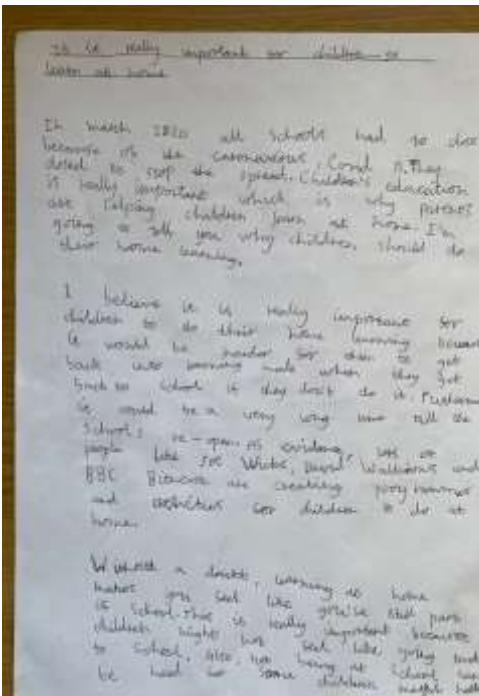 It is really important for children to
learn at home
In march 2020 all schools had to close
because of the coronavirus. Covid 19. They
closed to stop the spread. Children's education
is really important which is why parents
are helping children learn at home. I'm
going to tell you why children should do
their home learning.
I believe it is really important for
children to do their home learning because
it would be harder for them to get
back into learning mode when they get
back to school if they don't do it. Furthermore
it could be a very long time till the
schools re-open. As evidence, lots of
people like Joe Wicks, David Walliams and
BBC Bitesize are creating programmes
and activities for children to do at
home.
Without a doubt, learning at home
makes you feel like you're still part
of school. This is really important because
children might not feel like going back
to school. Also, not being at school
be hard for some children